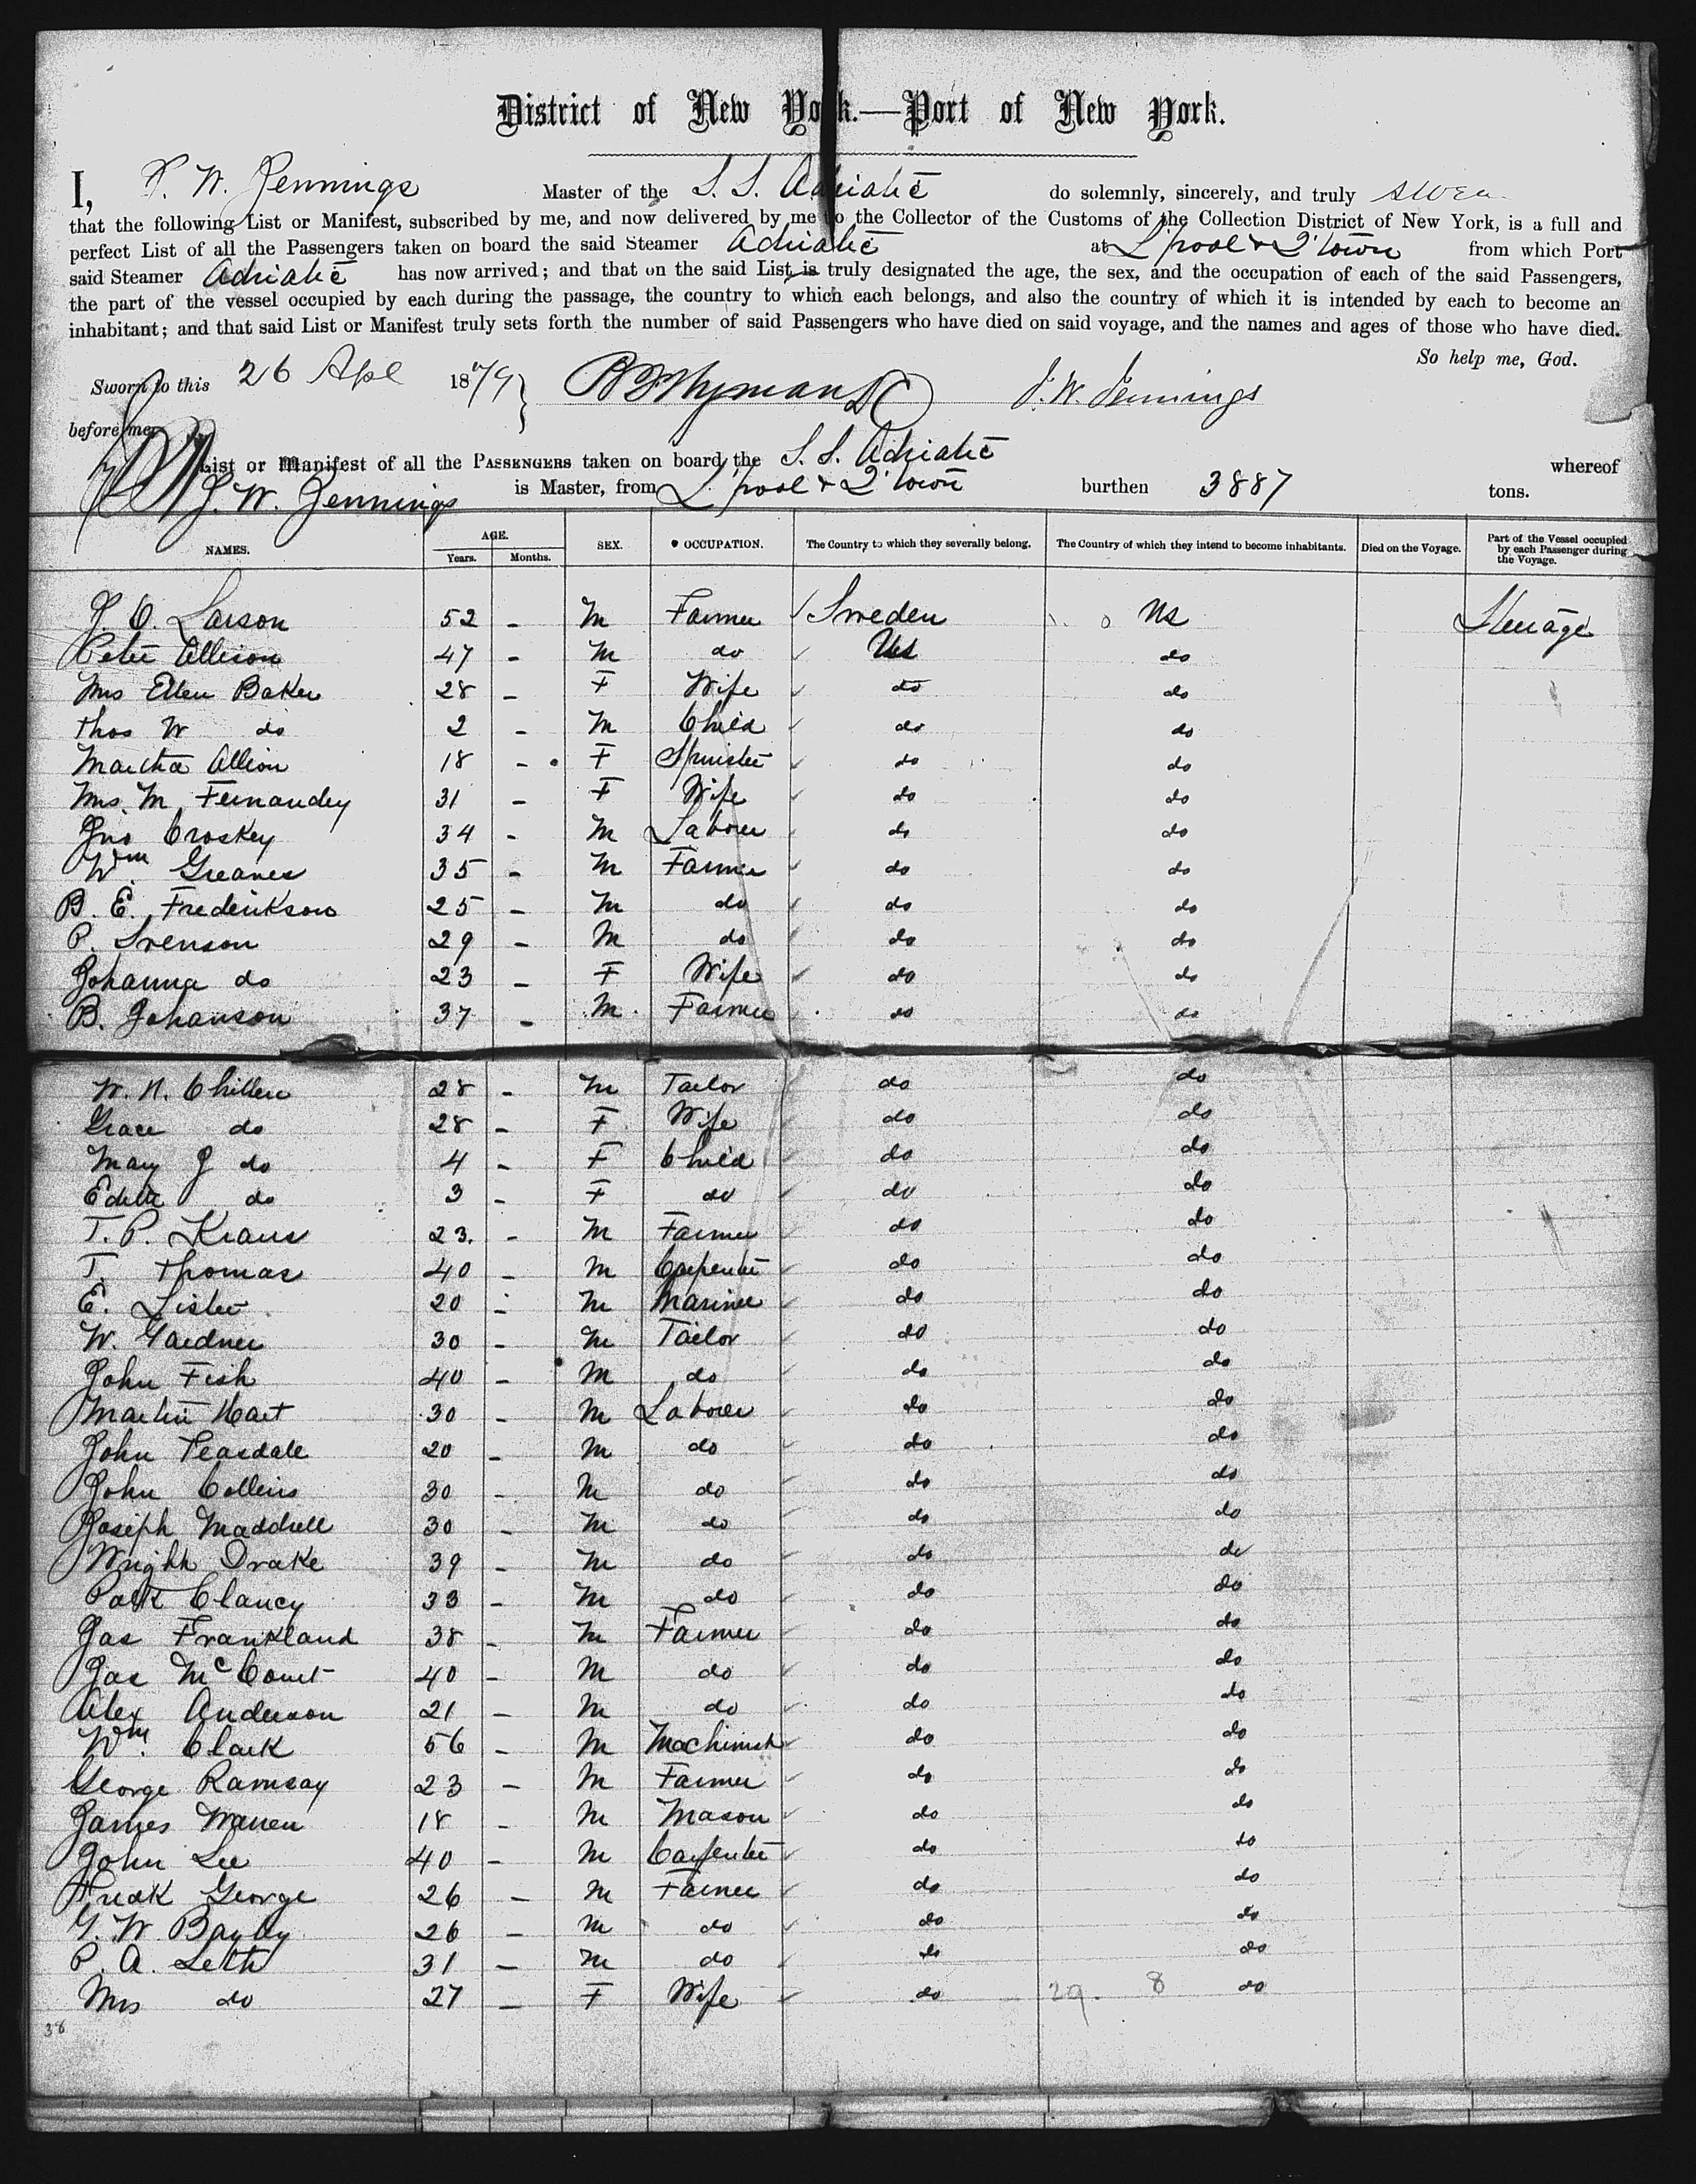 District of New York.—Port of New York.
I, J. W. Jennings Master of the S. S. Adriatic do solemnly, sincerely, and truly swear
that the following List or Manifest, subscribed by me, and now delivered by me to the Collector of the Customs of the Collection District of New York, is a full and
perfect List of all the Passengers taken on board the said Steamer Adriatic at L'pool & Q'town from which Port
said Steamer Adriatic has now arrived; and that on the said List is truly designated the age, the sex, and the occupation of each of the said Passengers,
the part of the vessel occupied by each during the passage, the country to which each belongs, and also the country of which it is intended by each to become an
inhabitant; and that said List or Manifest truly sets forth the number of said Passengers who have died on said voyage, and the names and ages of those who have died.
So help me, God.
Sworn to this 26 Apl 1879 J. W. Jennings
before me
List or Manifest of all the PASSENGERS taken on board the S. S. Adriatic whereof
J. W. Jennings is Master, from L'pool & Q'town burthen 3887 tons.
NAMES. AGE. Years. Months. SEX. OCCUPATION. The Country to which they severally belong. The Country of which they intend to become inhabitants. Died on the Voyage. Part of the Vessel occupied by each Passenger during the Voyage.
J. O. Larson 52 - M Farmer Sweden US Steerage
Peter Allison 47 - M do US do
Mrs Ellen Baker 28 - F Wife do do
Thos W do 2 - M Child do do
Martha Allion 18 - F Spinster do do
Mrs. M. Fernandey 31 - F Wife do do
Jno Croskey 34 - M Laborer do do
Wm Greaves 35 - M Farmer do do
B. E. Frederikson 25 - M do do do
P. Svenson 29 - M do do do
Johanna do 23 - F Wife do do
B. Johanson 37 - M Farmer do do
W. N. 28 - M Tailor do do
Grace do 28 - F Wife do do
Mary J do 4 - F Child do do
Edith do 3 - F do do do
T. P. Kraus 23 - M Farmer do do
T. Thomas 40 - M Carpenter do do
E. Lister 20 - M Mariner do do
W. Gardner 30 - M Tailor do do
John Fish 40 - M do do do
Martin Hart 30 - M Laborer do do
John Teasdale 20 - M do do do
John Collins 30 - M do do do
Joseph Maddrell 30 - M do do do
Wright Drake 39 - M do do do
Patk Clancy 33 - M do do do
Jas Frankland 38 - M Farmer do do
Jas McCourt 40 - M do do do
Alex Anderson 21 - M do do do
Wm. Clark 56 - M Machinist do do
George Ramsay 23 - M Farmer do do
James Warren 18 - M Mason do do
John Lee 40 - M Carpenter do do
Fredk George 26 - M Farmer do do
G. W. Bayley 26 - M do do do
P. A. Leth 31 - M do do do
Mrs do 27 - F Wife do 29. 8 do
38